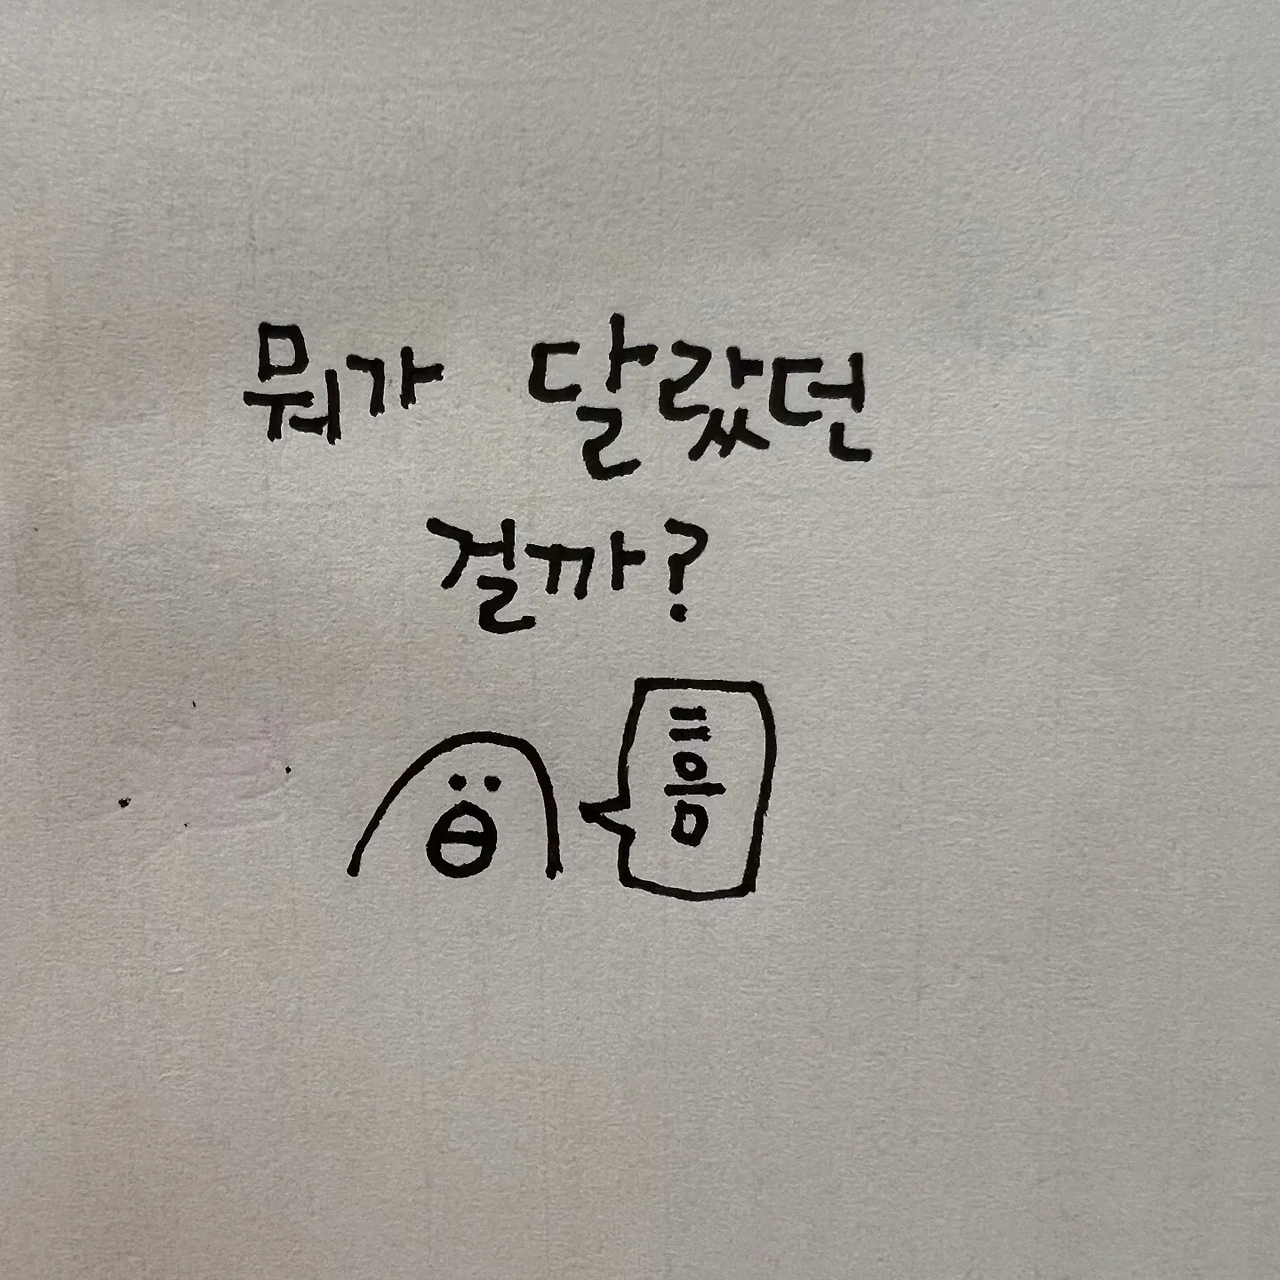 뭐가 달랐던
걸까?
흠